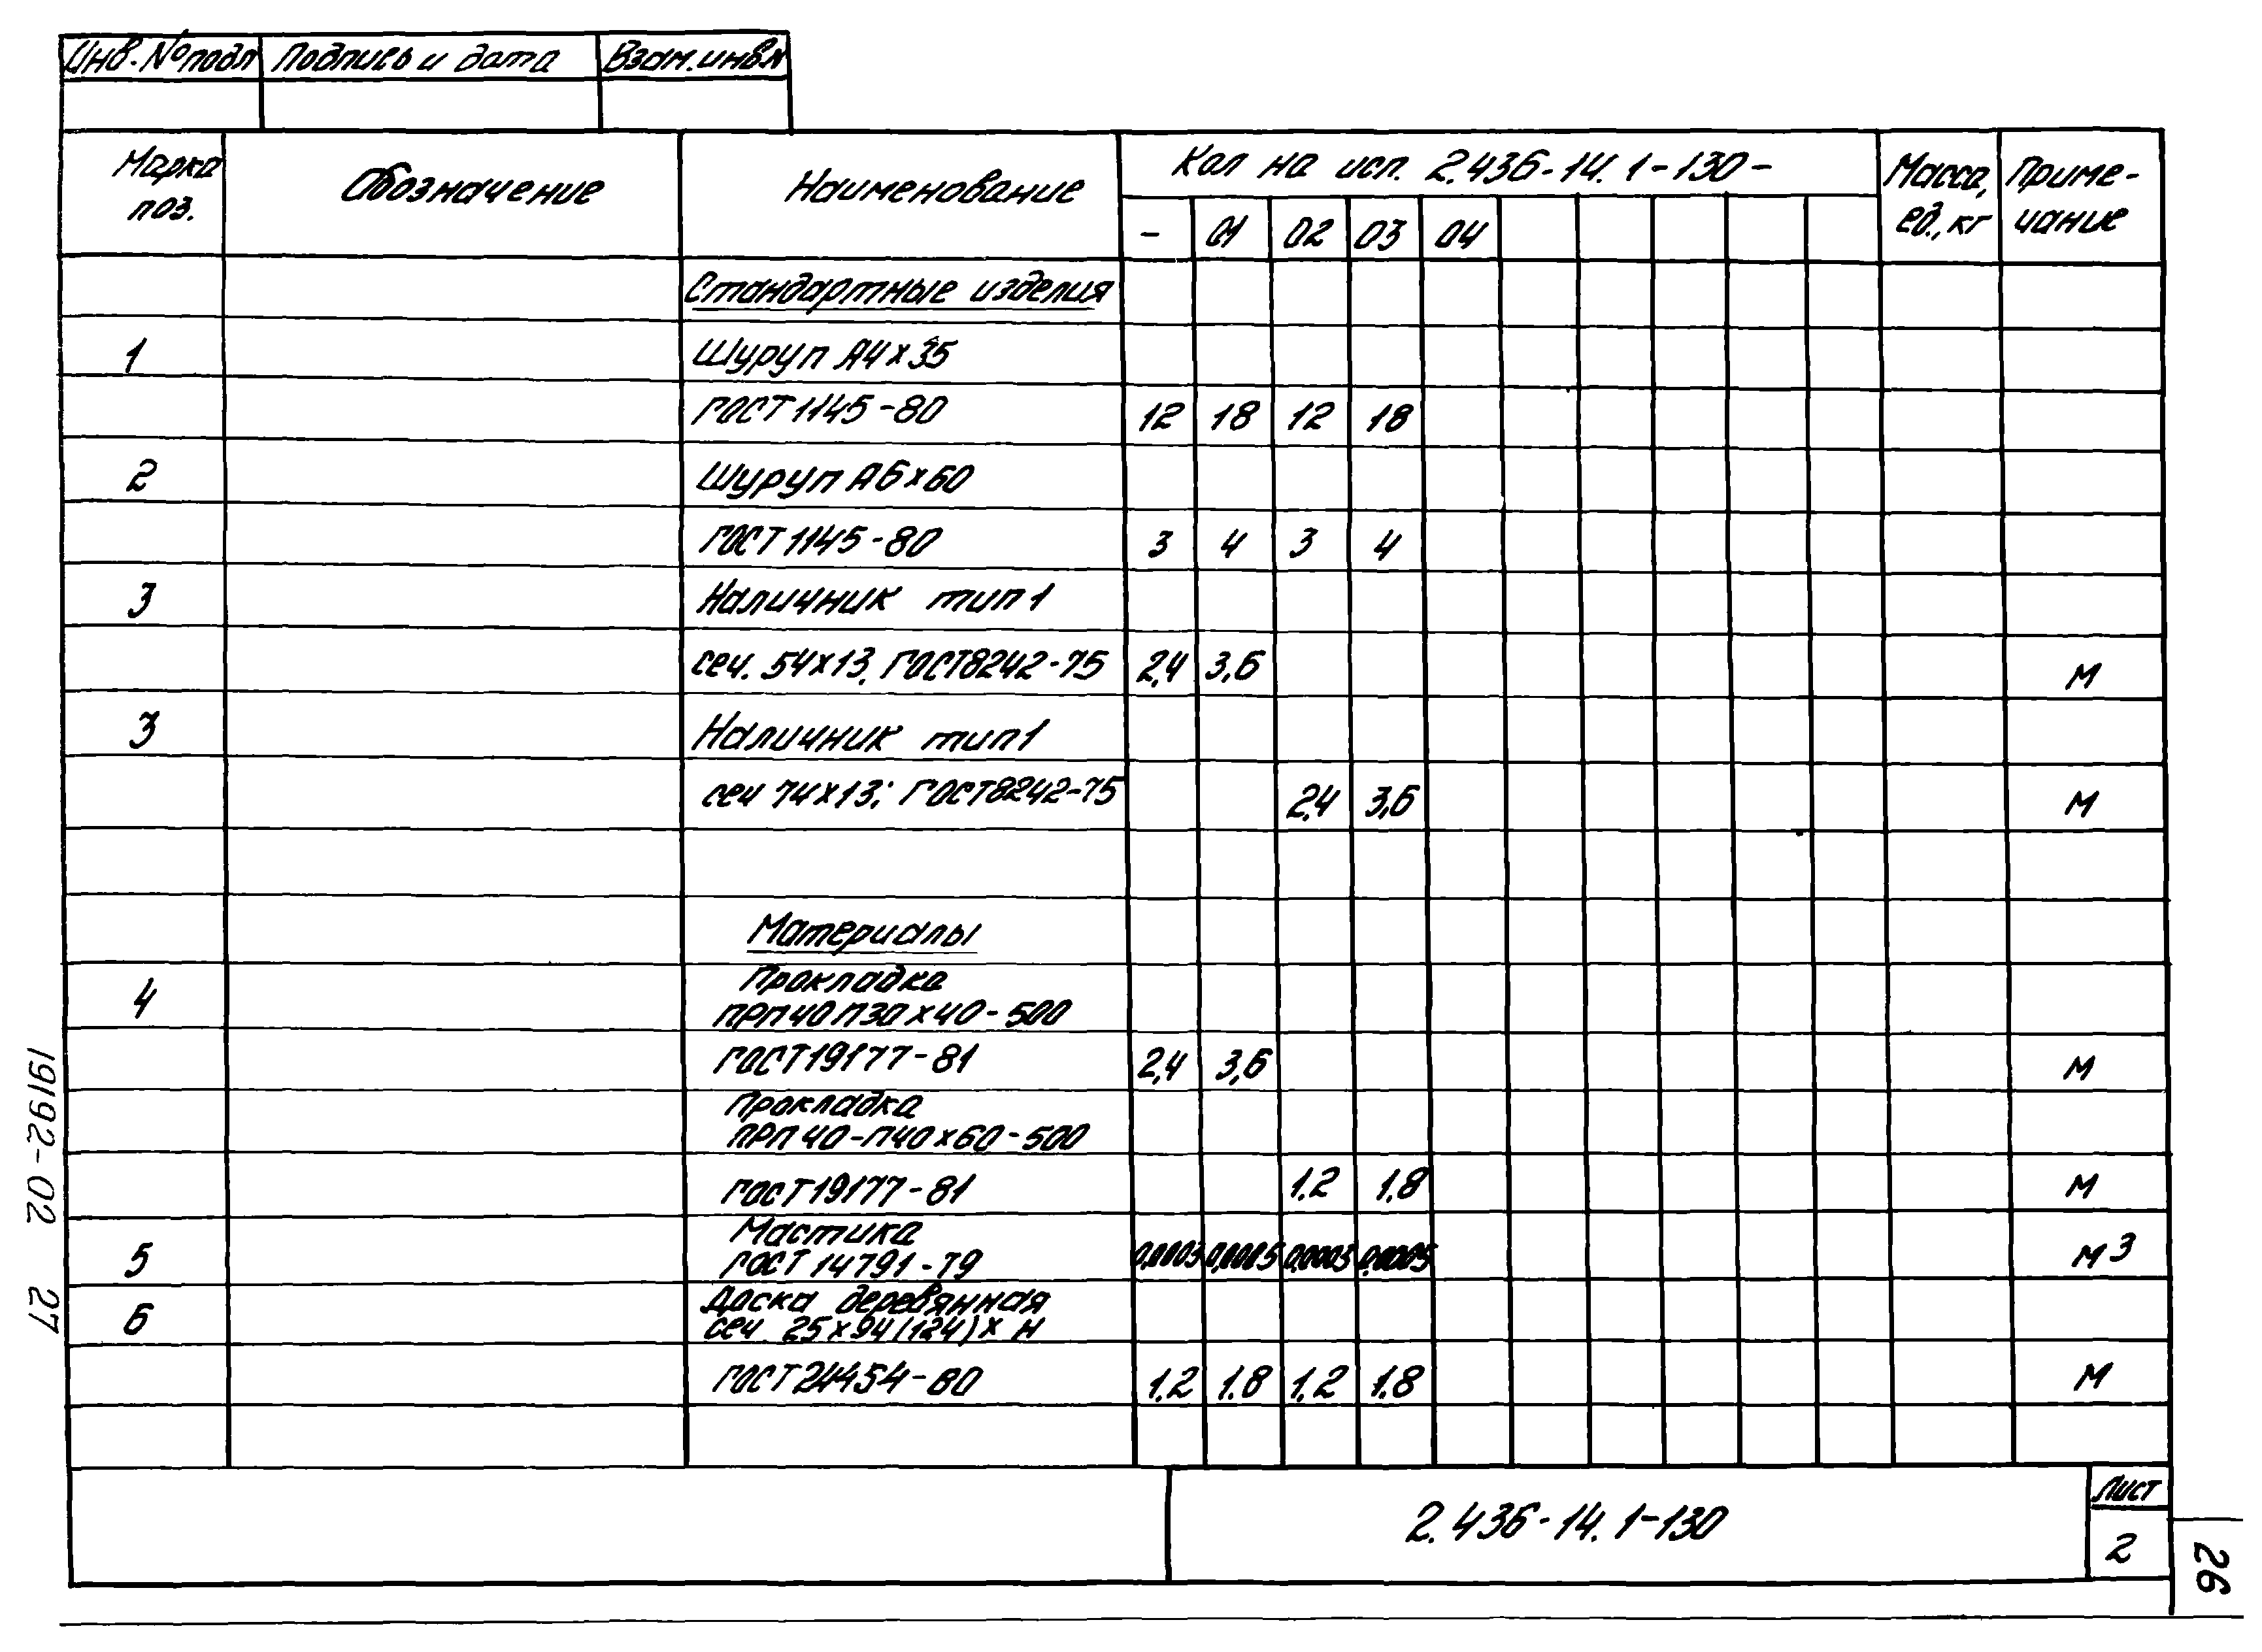 Инв. № подл Подпись и дата Взам. инв. №
Марка поз. Обозначение Наименование Кол на исп. 2.436-14.1-130- Масса, ед., кг Приме-чание
- 01 02 03 04
Стандартные изделия
1 Шуруп А4х35
ГОСТ 1145-80 12 18 12 18
2 Шуруп А6х60
ГОСТ 1145-80 3 4 3 4
3 Наличник тип 1
сеч. 54х13. ГОСТ 8242-75 2,4 3,6 м
3 Наличник тип 1
сеч 74х13; ГОСТ 8242-75 2,4 3,6 м
Материалы
4 Прокладка
ПРП 40 П30х40-500
ГОСТ 19177-81 2,4 3,6 м
Прокладка
ПРП 40-П40х60-500
ГОСТ 19177-81 1.2 1.8 м
Мастика
5 ГОСТ 14791-79 0,0003 0,0005 0,0003 0,0005 м3
6 Доска деревянная
сеч 25х94(124)х Н
ГОСТ 24454-80 1.2 1.8 1.2 1.8 м
2.436-14.1-130
Лист
2
26
19192-02 27